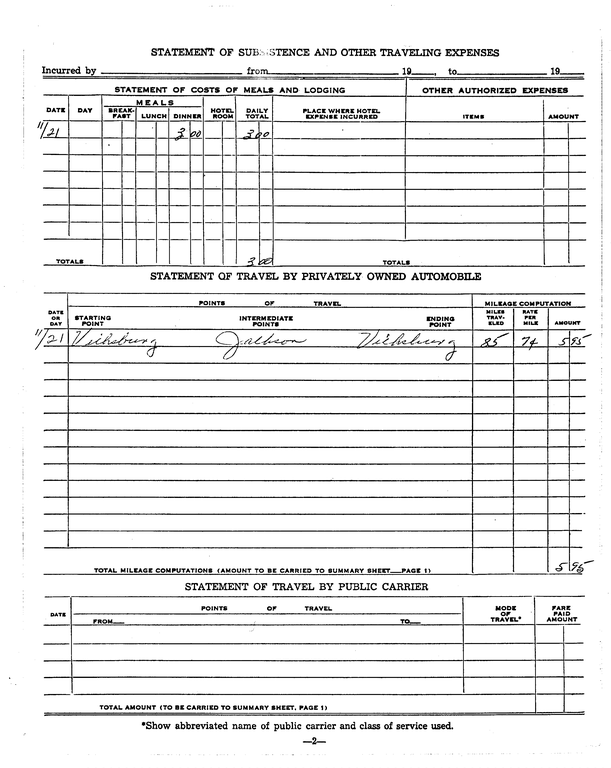 STATEMENT OF SUBSISTENCE AND OTHER TRAVELING EXPENSES
Incurred by from 19 , to 19
STATEMENT OF COSTS OF MEALS AND LODGING OTHER AUTHORIZED EXPENSES
DATE DAY MEALS BREAK-FAST LUNCH DINNER HOTEL ROOM DAILY TOTAL PLACE WHERE HOTEL EXPENSE INCURRED ITEMS AMOUNT
11/21 3 00 3 00
TOTALS 3 00 TOTALS
STATEMENT OF TRAVEL BY PRIVATELY OWNED AUTOMOBILE
POINTS OF TRAVEL MILEAGE COMPUTATION
DATE OR DAY STARTING POINT INTERMEDIATE POINTS ENDING POINT MILES TRAV-ELED RATE PER MILE AMOUNT
11/21 Vicksburg Jackson Vicksburg 85 7¢ 5 95
TOTAL MILEAGE COMPUTATIONS (AMOUNT TO BE CARRIED TO SUMMARY SHEET PAGE 1) 5 95
STATEMENT OF TRAVEL BY PUBLIC CARRIER
DATE POINTS OF TRAVEL MODE OF TRAVEL* FARE PAID AMOUNT
FROM TO
TOTAL AMOUNT (TO BE CARRIED TO SUMMARY SHEET, PAGE 1)
*Show abbreviated name of public carrier and class of service used.
—2—